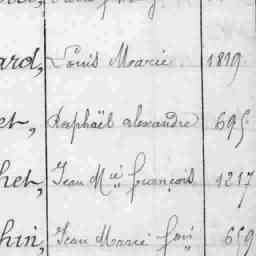 ard, Louis Marie 1819
et, Raphaël alexandre 695
het, Jean Mie françois 1217
hin, Jean Marie fois 659